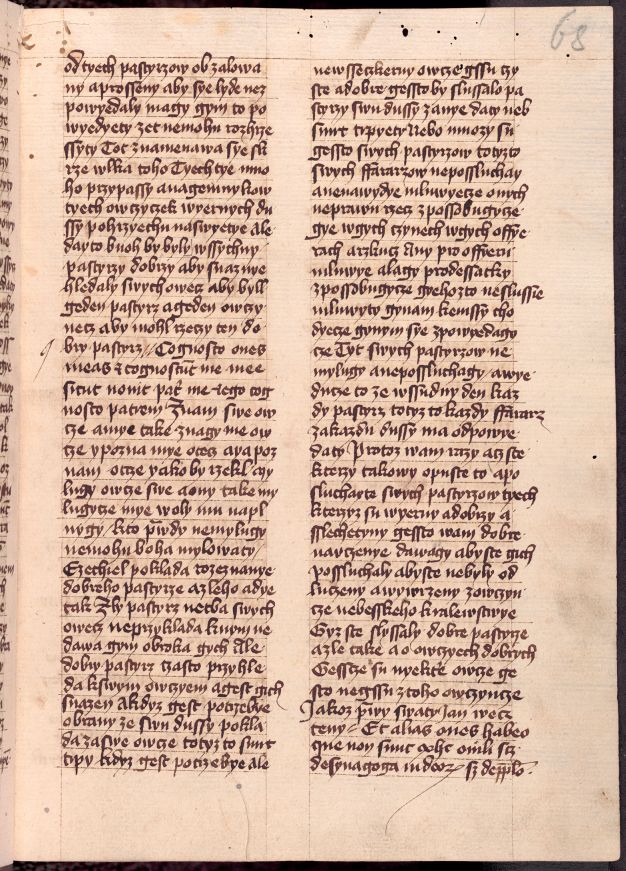 68
od tyech pastyrzow ob zalowa
ny a prosseny aby sye lyde nez
powyedaly magy gym to po
wyedyety zet nemohu rozhrze
ssyty Tot znamenawa sye sk
rze wlka toho Tyech tye mno
ho przypassy a nagemnykow
tyech owczyczek wyernych du
ssy pohrzyechu naswyetye Ale
day to buoh by byly wssychny
pastyrzy dobrzy aby snaznye
hledaly swych owecz aby byll
geden pastyrz a geden owczy
necz aby mohl rzeczy ten do
bry pastyrz Cognosco oues
meas et cognoscunt me mee
sicut nouit pater me et ego cog
nosco patrem Znam swe ow
cze a mye take znagy me ow
cze y pozna mye otecz a ya poz
nam otcze yako by rzekl my
lugy owcze swe a ony take my
lugycze mye woly mu napl
nygy kto prwdy nemylugy
nemohu boha mylowaty
Ezechiel poklada rozeznanye
dobreho pastyrze a zleho a dye
tak Zly pastyrz netba swych
owecz neprzyklada k nym ne
dawa gym obroka gich Ale
dobry pastyrz czasto przyhle
da k swym owczyem a gest gich
snazen A kdyz gest potrzebye
obrany ze swu dussy pokla
da za swe owcze totyz to smrt
trpy kdyz gest potrzebye ale
newsseczkerny owcze gssu czy
ste a dobre gessto by slussalo pa
styrzy swu dussy za nye daty neb
smrt trpyety Nebo mnozy su
gessto swych pastyrzow totyzto
swych ffararzow neposluchay
a nenawydye mluwyecze o nych
neprawu rzecz z possobugycze
gye w gych czynech w gych offye
rach a rzkucz Any pro offyeru
mluwye a lagy pro dessatky
z possobugycze gyehozto neslussie
mluwyto gynam kemssy cho
dyecze gynym sye zpowyedago
cze Tyt swych pastyrzow ne
mylugy a neposluchagy a wye
ducze to ze w ssudny den kaz
dy pastyrz totyz to kazdy ffararz
za kazdu dussy ma odpowye
daty Protoz wam razy acz ste
kterzy takowy opuste to a po
sluchayte swych pastyrzow tyech
kterzyz su wyerny a dobrzy a
sslechetny gessto wam dobre
nauczenye dawagy abyste gich
possluchaly abyste nebyly od
luczeny a wywrzeny z owczyn
cze nebesskeho kralewstwye
Gyz ste slyssaly dobre pastyrze
a zle take a o owczyech dobrych
Gesscze su nyekte owcze ge
sto negssu z toho owczyncze
Jakoz prwy swaty Jan wecz
teny Et alias oues habeo
que non sunt ex hoc ouili scz
de synagoga iudeorum sz de pplo